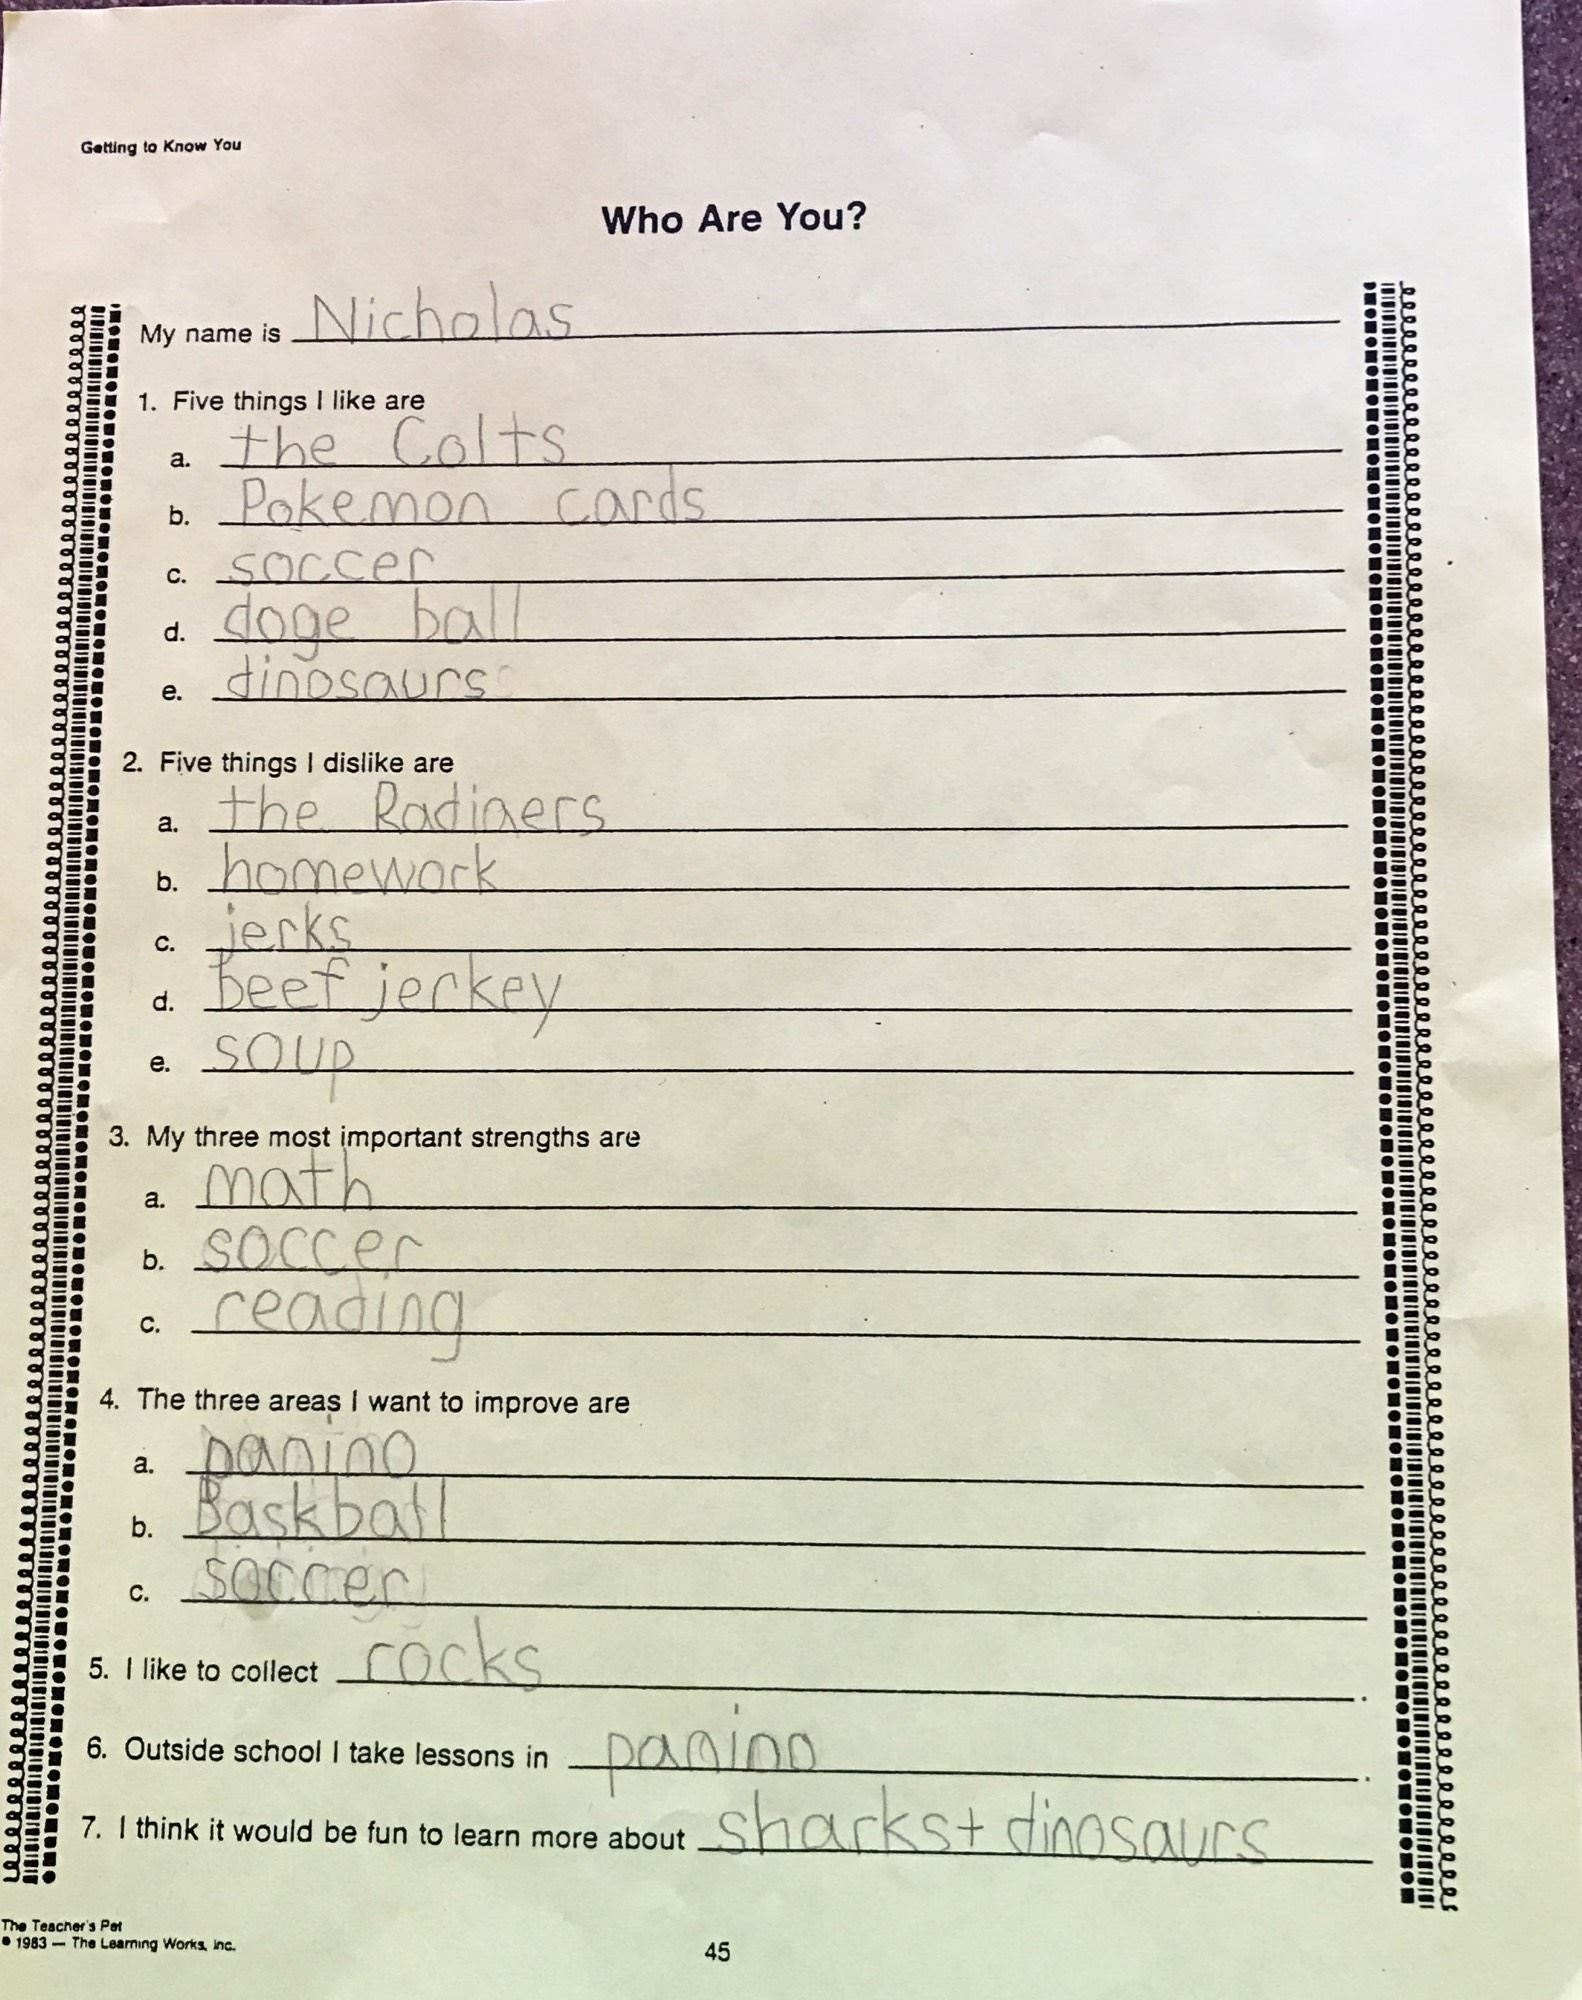 Getting to Know You
Who Are You?
My name is Nicholas
1. Five things I like are
a. the Colts
b. Pokemon cards
c. soccer
d. doge ball
e. dinosaurs
2. Five things I dislike are
a. the Radiners
b. homework
c. jerks
d. beef jerkey
e. soup
3. My three most important strengths are
a. math
b. soccer
c. reading
4. The three areas I want to improve are
a. panino
b. Baskball
c. soccer
5. I like to collect rocks.
6. Outside school I take lessons in panino.
7. I think it would be fun to learn more about sharks + dinosaurs
The Teacher's Pet
© 1983 — The Learning Works, Inc.
45